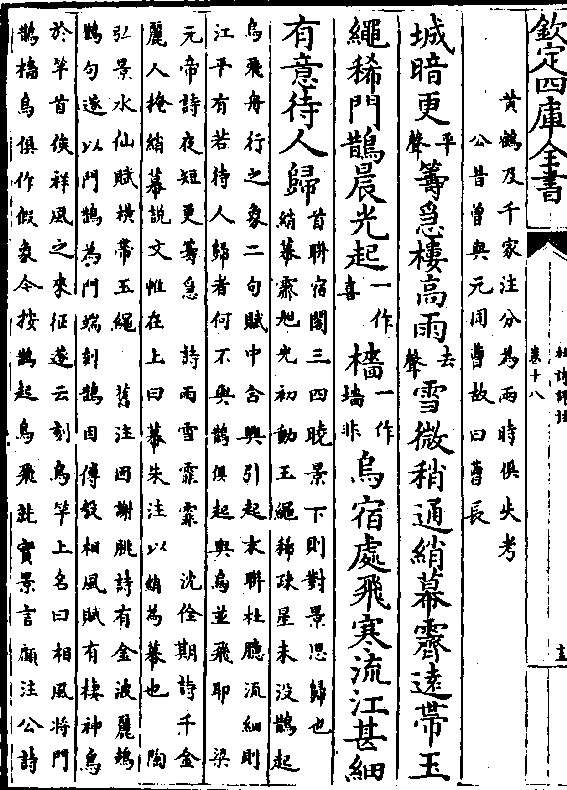 欽定四庫全書
杜詩詳註
卷十八
黃鶴及千家注分為兩時俱失考
公昔曾與元同曹故曰曹長
城暗更平聲籌急樓高雨去聲雪微稍通綃幕霽遠帶玉
繩稀門鵲晨光起一作喜檣一作墻非烏宿處飛寒流江甚細
有意待人歸
首聯宿閣三四曉景下則對景思歸也
綃幕霽旭光初動玉繩稀疎星未沒鵲起
烏飛舟行之象二句賦中含興引起末聯杜臆流細則
江平有若待人歸者何不與鵲俱起與烏並飛耶 梁
元帝詩夜短更籌急 詩雨雪霏霏 沈佺期詩千金
麗人捲綃幕說文帷在上曰幕朱注以綃為幕也 陶
弘景水仙賦橫帶玉繩 舊注因謝脁詩有金波麗鳷
鵲句遂以門鵲為門端刻鵲因傅相風賦有棲神烏
於竿首俟祥風之來征遂云刻烏竿上名曰相風將門
鵲檣烏俱作假象今按鵲起烏飛就實景言顧注公詩